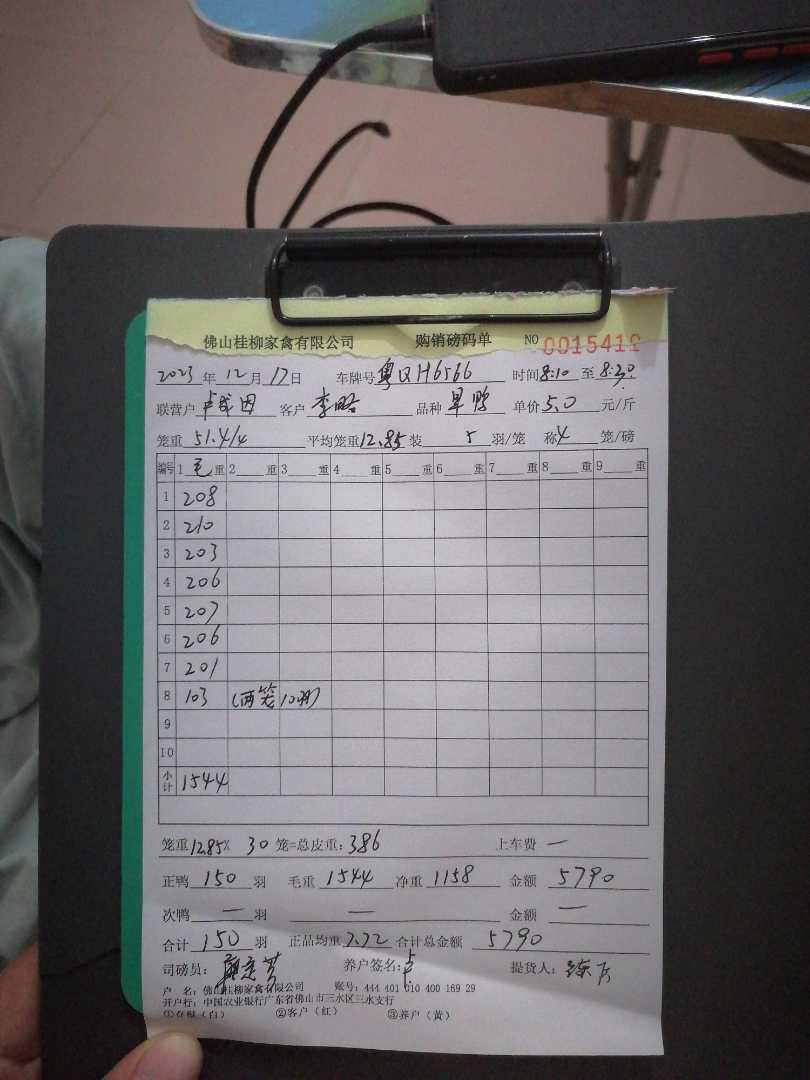 佛山桂柳家禽有限公司 购销磅码单 NO 0015412
2023年12月17日 车牌号粤QH6566 时间8:10至8:30
联营户 客户李略 品种 单价5.0元/斤
笼重51.4/4 平均笼重12.85装5羽/笼 称4笼/磅
编号 1毛重 2重 3重 4重 5重 6重 7重 8重 9重
1 208
2 210
3 203
4 206
5 207
6 206
7 201
8 103 (两笼10羽)
9
10
小计 1544
笼重12.85X30笼=总皮重:386 上车费 —
正鸭150羽 毛重1544净重1158 金额5790
次鸭—羽 — 金额 —
合计150羽 正品均重7.72合计总金额5790
司磅员: 养户签名:卢 提货人:
户 名:佛山桂柳家禽有限公司 账号:444 401 010 400 169 29
开户行:中国农业银行广东省佛山市三水区三水支行
①存根(白) ②客户(红) ③养户(黄)